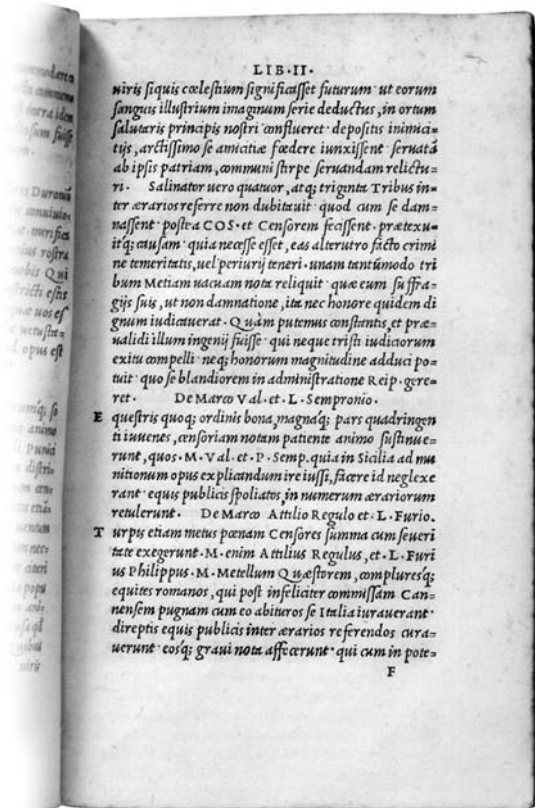 LIB·II·
niris siquis cœlestium significasset futurum· ut eorum
sanguis illustrium imaginum serie deductus, in ortum
salutaris principis nostri conflueret· depositis inimici=
tijs, arctissimo se amicitiæ fœdere iunxissent· seruatã
ab ipsis patriam, communi stirpe seruandam relictu=
ri· Salinator uero quatuor, atq; triginta Tribus in=
ter ærarios referre non dubitauit· quod cum se dam=
nassent· postea COS·et Censorem fecissent· prætexu=
itq; causam· quia necesse esset, eas alterutro facto crimi
ne temeritatis, uel periurij teneri· unam tantũmodo tri
bum Metiam uacuam nota reliquit· quæ eum suffra=
gijs suis, ut non damnatione, ita nec honore quidem di
gnum iudicauerat· Quàm putemus constantis, et præ=
ualidi illum ingenij fuisse· qui neque tristi iudiciorum
exitu compelli· neq; honorum magnitudine adduci po=
tuit· quo se blandiorem in administratione Reip· gere=
ret· De Marco Val·et·L·Sempronio·
E questris quoq; ordinis bona, magnaq́; pars quadringen
ti iuuenes, censoriam notam patiente animo sustinue=
runt, quos·M·Val·et·P·Semp·quia in Sicilia ad mu
nitionum opus explicandum ire iussi, facere id neglexe
rant· equis publicis spoliatos, in numerum ærariorum
retulerunt· De Marco Attilio Regulo et·L·Furio.
T urpis etiam metus pœnam Censores summa cum seueri
tate exegerunt·M·enim Attilius Regulus, et·L·Furi
us Philippus·M·Metellum Quæstorem, compluresq́;
equites romanos, qui post infeliciter commissam Can=
nensem pugnam cum eo abituros se Italia iurauerant·
direptis equis publicis inter ærarios referendos cura=
uerunt· eosq́; graui nota affecerunt· qui cum in pote=
F